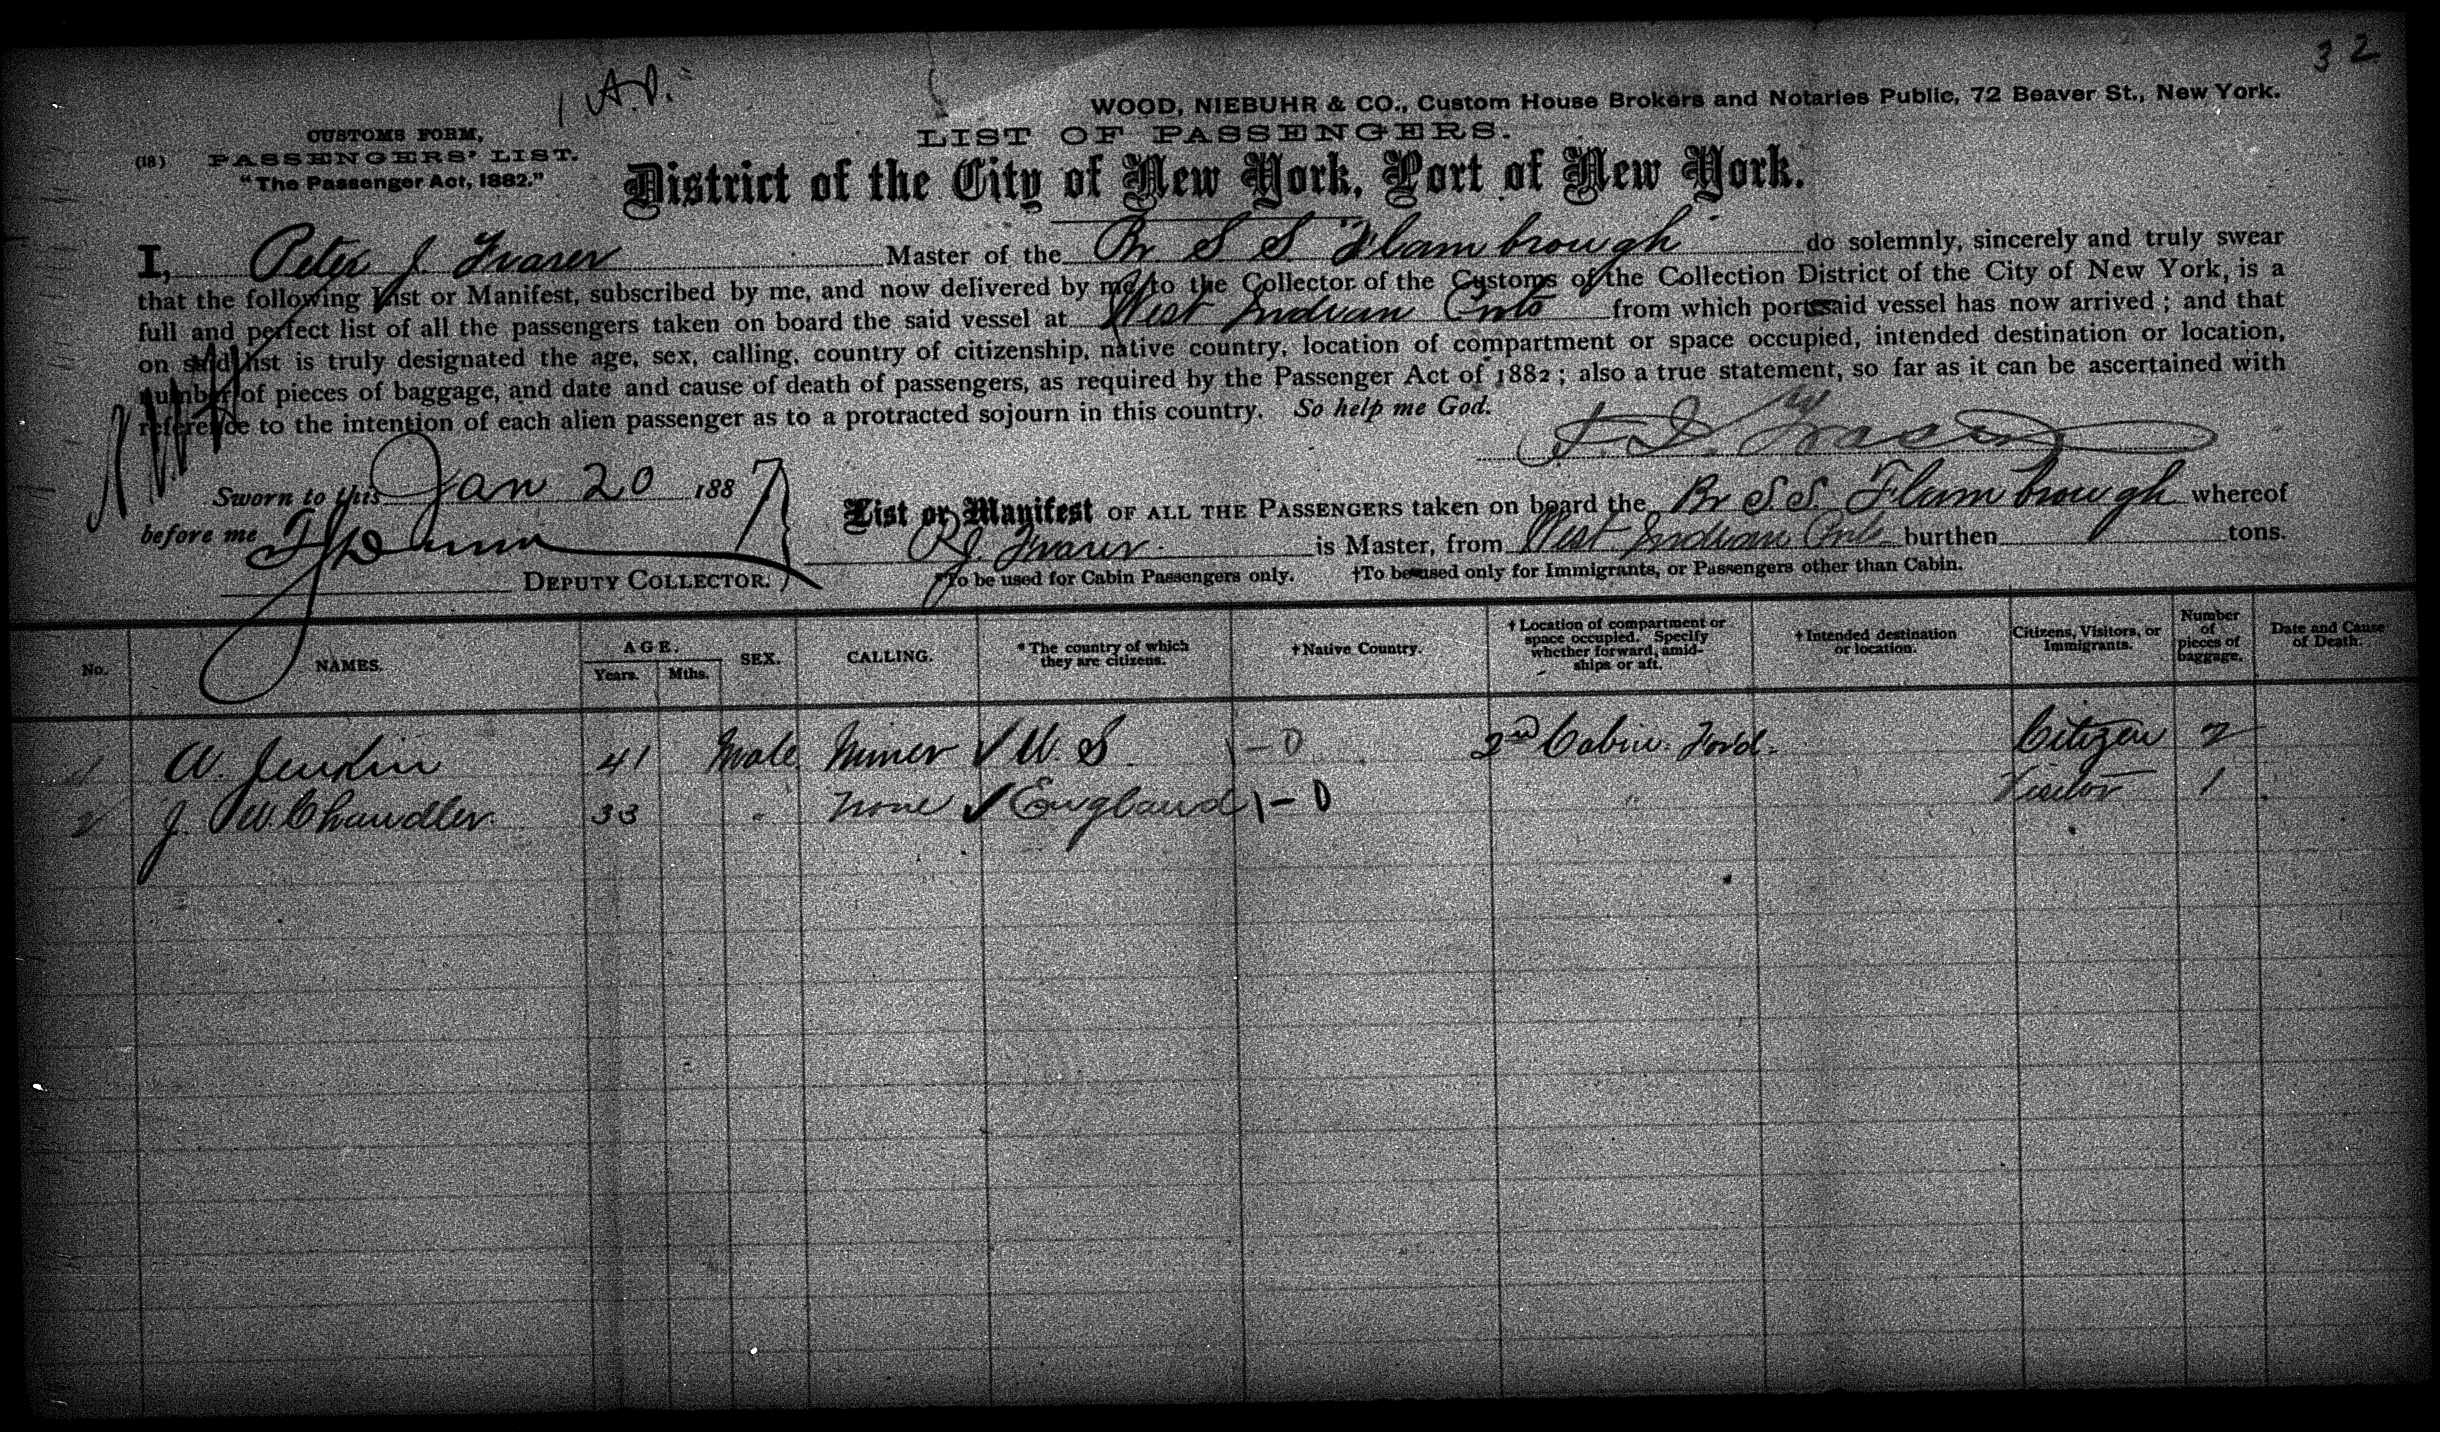 32
WOOD, NIEBUHR & CO., Custom House Brokers and Notaries Public, 72 Beaver St., New York.
CUSTOMS FORM,
LIST OF PASSENGERS.
(18) PASSENGERS' LIST.
"The Passenger Act, 1882."
District of the City of New York, Port of New York.
I, Peter J. Fraser Master of the Br S S Flambrough do solemnly, sincerely and truly swear
that the following List or Manifest, subscribed by me, and now delivered by me to the Collector of the Customs of the Collection District of the City of New York, is a
full and perfect list of all the passengers taken on board the said vessel at West Indian Ports from which port said vessel has now arrived; and that
on said list is truly designated the age, sex, calling, country of citizenship, native country, location of compartment or space occupied, intended destination or location,
number of pieces of baggage, and date and cause of death of passengers, as required by the Passenger Act of 1882; also a true statement, so far as it can be ascertained with
reference to the intention of each alien passenger as to a protracted sojourn in this country. So help me God.
P. J. Fraser
Sworn to this Jan 20 1887
before me
DEPUTY COLLECTOR.
List or Manifest OF ALL THE PASSENGERS taken on board the Br S S. Flambrough whereof
P J. Fraser is Master, from West Indian Ports burthen tons.
*To be used for Cabin Passengers only. †To be used only for Immigrants, or Passengers other than Cabin.
No. NAMES. AGE. Years. Mths. SEX. CALLING. *The country of which they are citizens. †Native Country. †Location of compartment or space occupied. Specify whether forward, amidships or aft. †Intended destination or location. Citizens, Visitors, or Immigrants. Number of pieces of baggage. Date and Cause of Death.
1 W. Jenkin 41 Male Miner U. S 1-0 2nd Cabin. Ford. Citizen 2
2 J. W. Chandler. 33 " None England 1-0 " Visitor 1